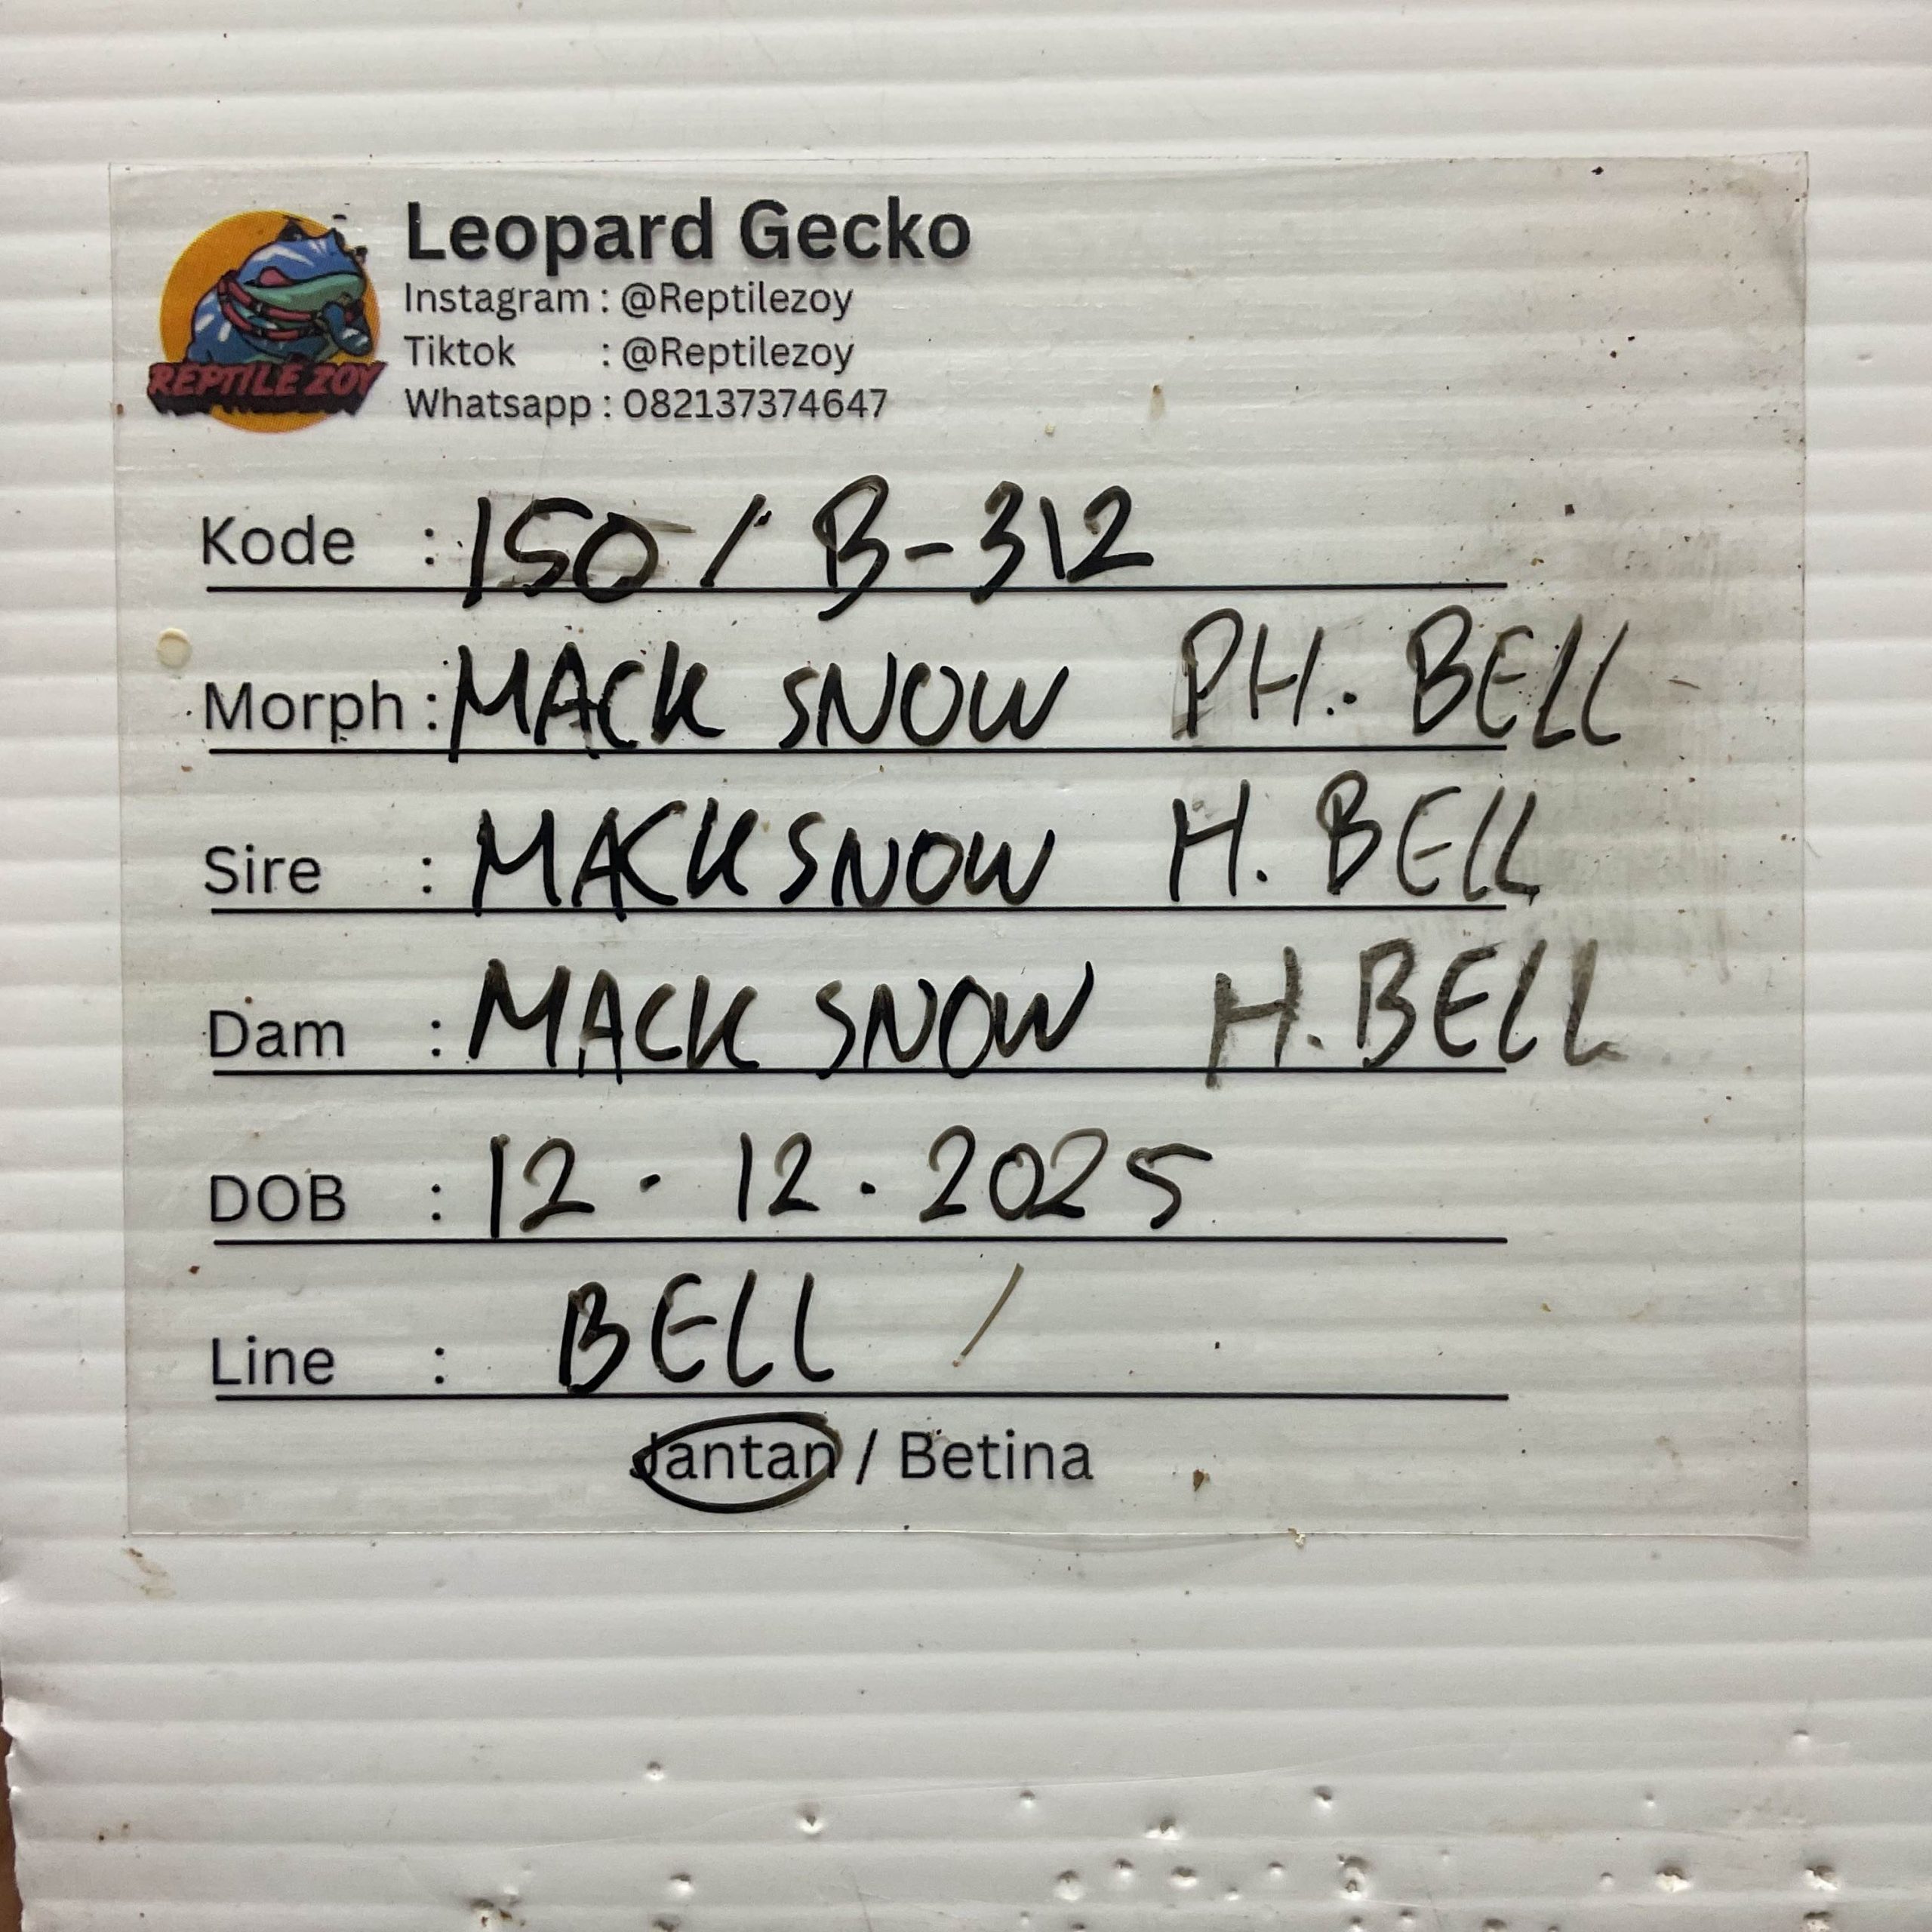 Leopard Gecko
Instagram : @Reptilezoy
Tiktok : @Reptilezoy
Whatsapp : 082137374647
REPTILE ZOY
Kode : 150 / B-312
Morph : MACK SNOW PH. BELL
Sire : MACK SNOW H. BELL
Dam : MACK SNOW H. BELL
DOB : 12 . 12 . 2025
Line : BELL /
Jantan / Betina